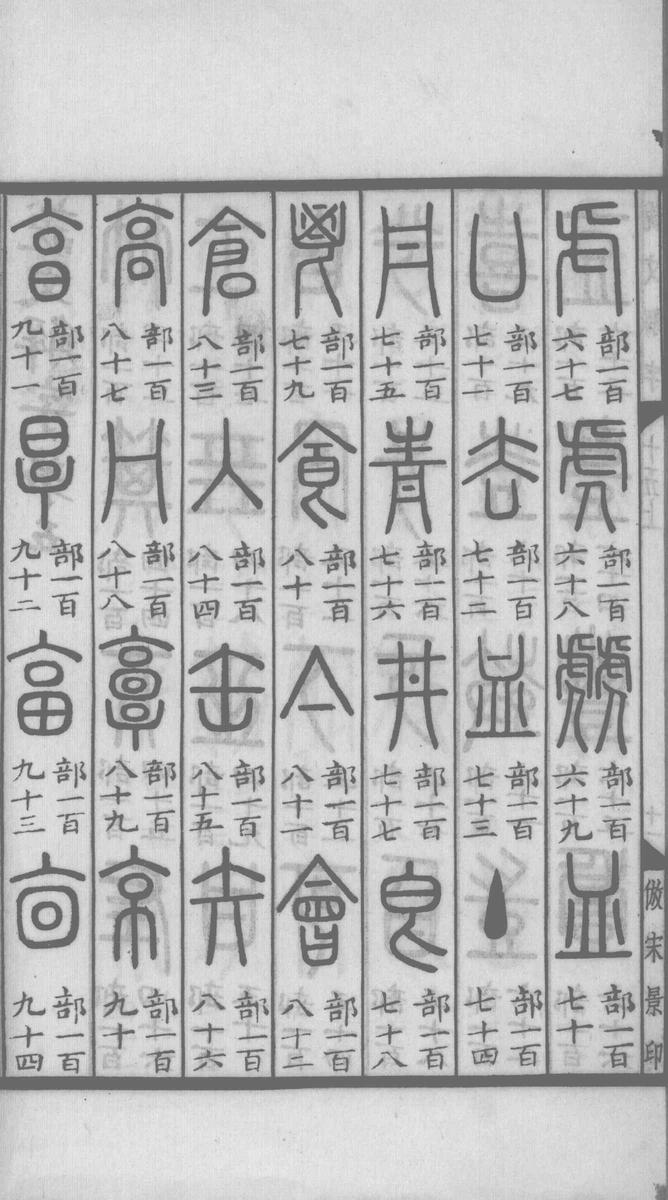 虍部一百六十七 虎部一百六十八 虤部一百六十九 皿部一百七十
凵部一百七十一 去部一百七十二 血部一百七十三 丶部一百七十四
丹部一百七十五 青部一百七十六 井部一百七十七 皀部一百七十八
鬯部一百七十九 食部一百八十 亼部一百八十一 會部一百八十二
倉部一百八十三 入部一百八十四 缶部一百八十五 矢部一百八十六
高部一百八十七 冂部一百八十八 𩫖部一百八十九 京部一百九十
亯部一百九十一 㫗部一百九十二 畐部一百九十三 㐭部一百九十四
十五上
倣宋景印